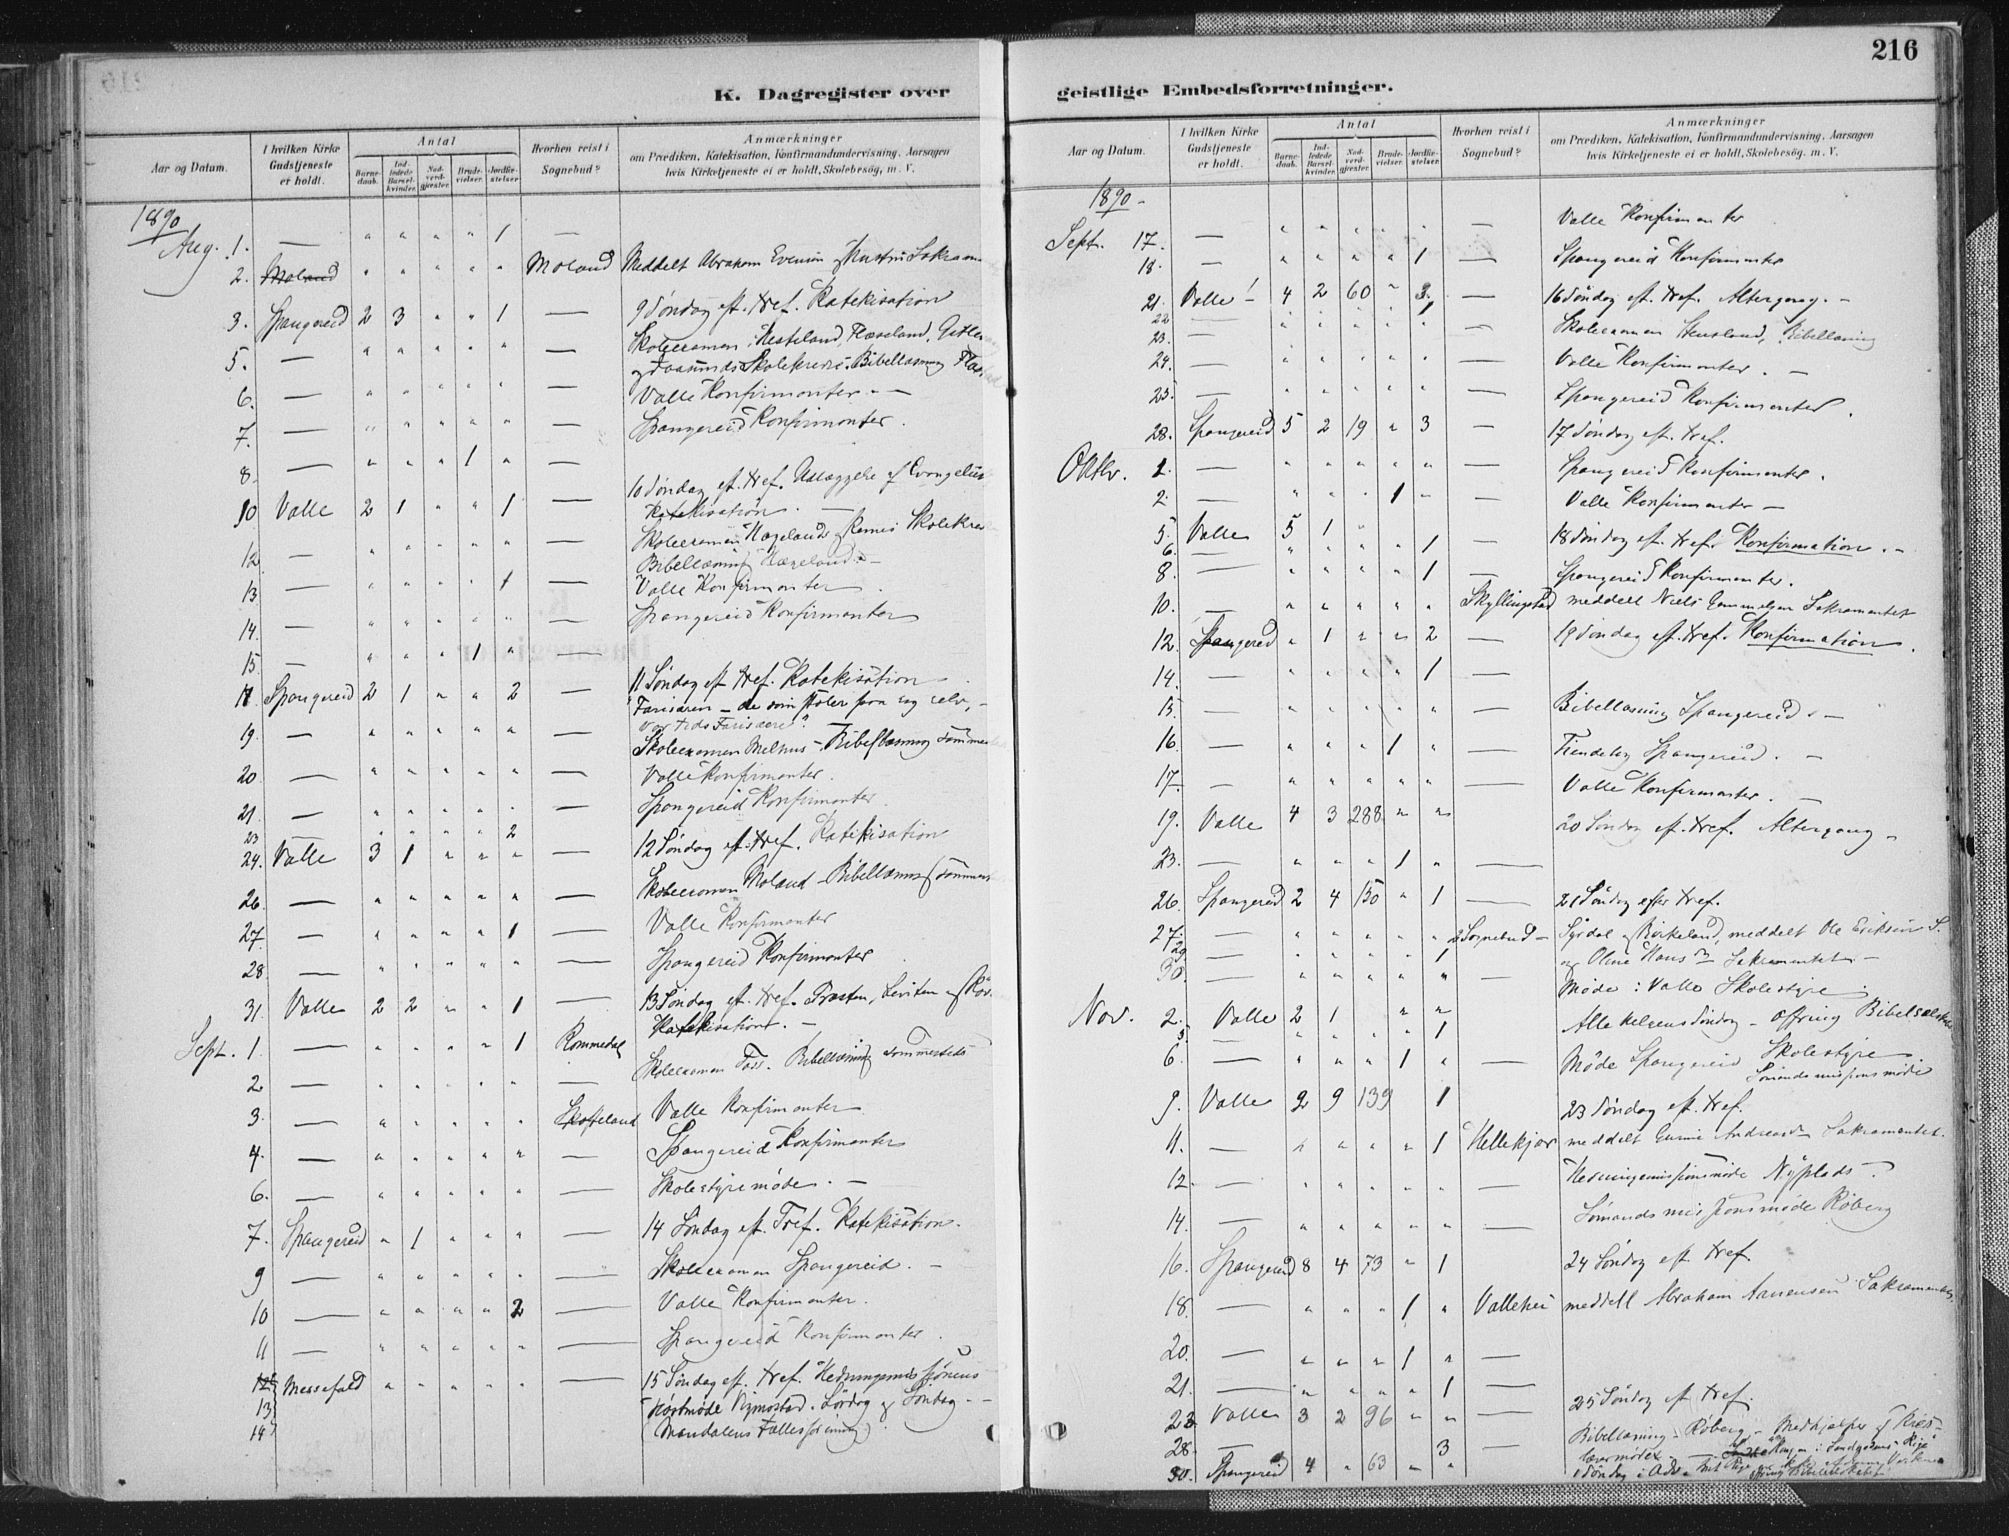 216
K. Dagregister over
geistlige Embedsforretninger.
Aar og Datum.
I hvilken Kirke Gudstjeneste er holdt.
Antal
Barnedaab.
Indledede Barselkvinder.
Nadverdgjæster.
Brudevielser.
Jordfæstelser.
Hvorhen reist i Sognebud?
Anmærkninger
om Prædiken, Katekisation, Konfirmandundervisning, Aarsagen
hvis Kirketjeneste ei er holdt, Skolebesøg, m. V.
1890
Aug. 1. — " " " " 1 —
2. Moland " " " " " Moland Meddelt Abraham Evensen
3. Spangereid 2 3 " " 1 — 9 Søndag eft. tref. Katekisation
5. — " " " " " — Skoleexamen
6. — " " " " " — Valle Konfirmanter. —
7. — " " " " " — Spangereid Konfirmanter.
8. — " " " 1 " —
10 Valle 2 1 " " 1 — 10 Søndag eft. tref.
Katekisation. —
12. — " " " " " — Skoleexamen
Bibellæsning
13. — " " " " 1 — Valle Konfirmanter.
14. — " " " " " — Spangereid Konfirmanter
15 — " " " 1 " —
17. Spangereid 2 1 " " 2 — 11 Søndag eft. tref. Katekisation.
19. — " " " " " — Skoleexamen Melhus - Bibellæsning
20 — " " " " " — Valle Konfirmanter.
21. — " " " " " — Spangereid Konfirmanter.
23 " " " " 2
24. Valle 3 1 " " " — 12 Søndag eft. tref. Katekisation
26. — " " " " " — Skoleexamen Moland - Bibellæsn.
27. — " " " " 1 — Valle Konfirmanter
28. — " " " " " — Spangereid Konfirmanter
31. Valle 2 2 " " 1 — 13 Søndag eft. tref. Præsten, Leviten og
Katekisation. —
Sept. 1. — " " " " 1 Rommedal
2. — " " " " " — Skoleexamen Foss. Bibellæsning
3. — " " " " " Skoffeland Valle Konfirmanter
4. — " " " " " — Spangereid Konfirmanter
6. — " " " " " — Skolestyremøde. —
7. Spangereid " 1 " " " — 14 Søndag eft. Tref. Katekisation.
9 — " " " " " — Skoleexamen Spangereid. —
10 — " " " " 2 — Valle Konfirmanter.
11 — " " " " " — Spangereid Konfirmanter.
12 Messefald " " " " " — 15 Søndag eft. tref. Hedningemissjonens
13 Høstmøde Vigmostad. Lørdag og Søndag. —
14 (Mandalens Fællesforening)
Aar og Datum.
I hvilken Kirke Gudstjeneste er holdt.
Antal
Barnedaab.
Indledede Barselkvinder.
Nadverdgjæster.
Brudevielser.
Jordfæstelser.
Hvorhen reist i Sognebud?
Anmærkninger
om Prædiken, Katekisation, Konfirmandundervisning, Aarsagen
hvis Kirketjeneste ei er holdt, Skolebesøg, m. V.
1890 -
Sept. 17. — " " " " " — Valle Konfirmanter
18. — " " " " 1 — Spangereid Konfirmanter
21. Valle 4 2 60 " 3. — 16 Søndag eft. tref. Altergang. —
22 — " " " " 1
23. — " " " " " — Skoleexamen Stensland, Bibellæsning
24. — " " " " " — Valle Konfirmanter. —
25. — " " " " " — Spangereid Konfirmanter.
28. Spangereid 5 2 19 " 3 — 17 Søndag eft. tref.
Oktbr. 1. — " " " " " — Spangereid Konfirmanter.
2. — " " " 1 " — Valle Konfirmanter —
5. Valle 5 1 " — 18 Søndag eft. tref. Konfirmation. —
6. — " " " " 1
8. — " " " " 1 — Spangereid Konfirmanter.
10. — " " " " " Skyllingstad meddelt Niels Gammelsen Sakramentet
12. Spangereid " 1 " " 2 — 19 Søndag eft. tref. Konfirmation.
14. — " " " " 1 —
15. — " " " " " — Bibellæsning Spangereid. —
16. — " " " 1 " — Tiendeby Spangereid. —
17. — " " " " " — Valle Konfirmanter. —
19. Valle 4 3 288 " " 20 Søndag eft. tref. Altergang —
23. — " " " 1 " —
26. Spangereid 2 4 150 " 1 — 21 Søndag efter tref.
27. — " " " " " 2 Sognebud — Syrdal og Birkeland, meddelt Ole Eriksen S.
29. — " " " " 1 og Oline Hans D. Sakramentet —
30. — " " " " " — Møde i Valle Skolestyre.
Nov. 2. Valle 2 1 " " Allehelgens Søndag - Offring Bibelselskabet
5. " " " " 1
6. — " " " 1 " — Møde Spangereid Skolestyre.
Sømandsmissionsmøde
9. Valle 2 9 139 1 23 Søndag eft. tref.
11. — " " " " 1 Hellekjær meddelt Gurine Andreasd. Sakramentet.
12. — " " " " " — Hedningemissionsmøde Nyplads —
14. — " " " " " — Sømandsmissionsmøde Røberg
16. Spangereid 8 4 73 " 1 24 Søndag eft. tref.
18. — " " " 1 " Vallehei meddelt Abraham Aanensen Sakramentet.
20. " " " 1 " —
21. — " " " " 1 —
23. Valle 3 2 96 " " — 25 Søndag eft. tref.
28. — 3 — Bibellæsning - Røberg -
30. Spangereid 4 " 63 " " 1 Søndag i Adv.